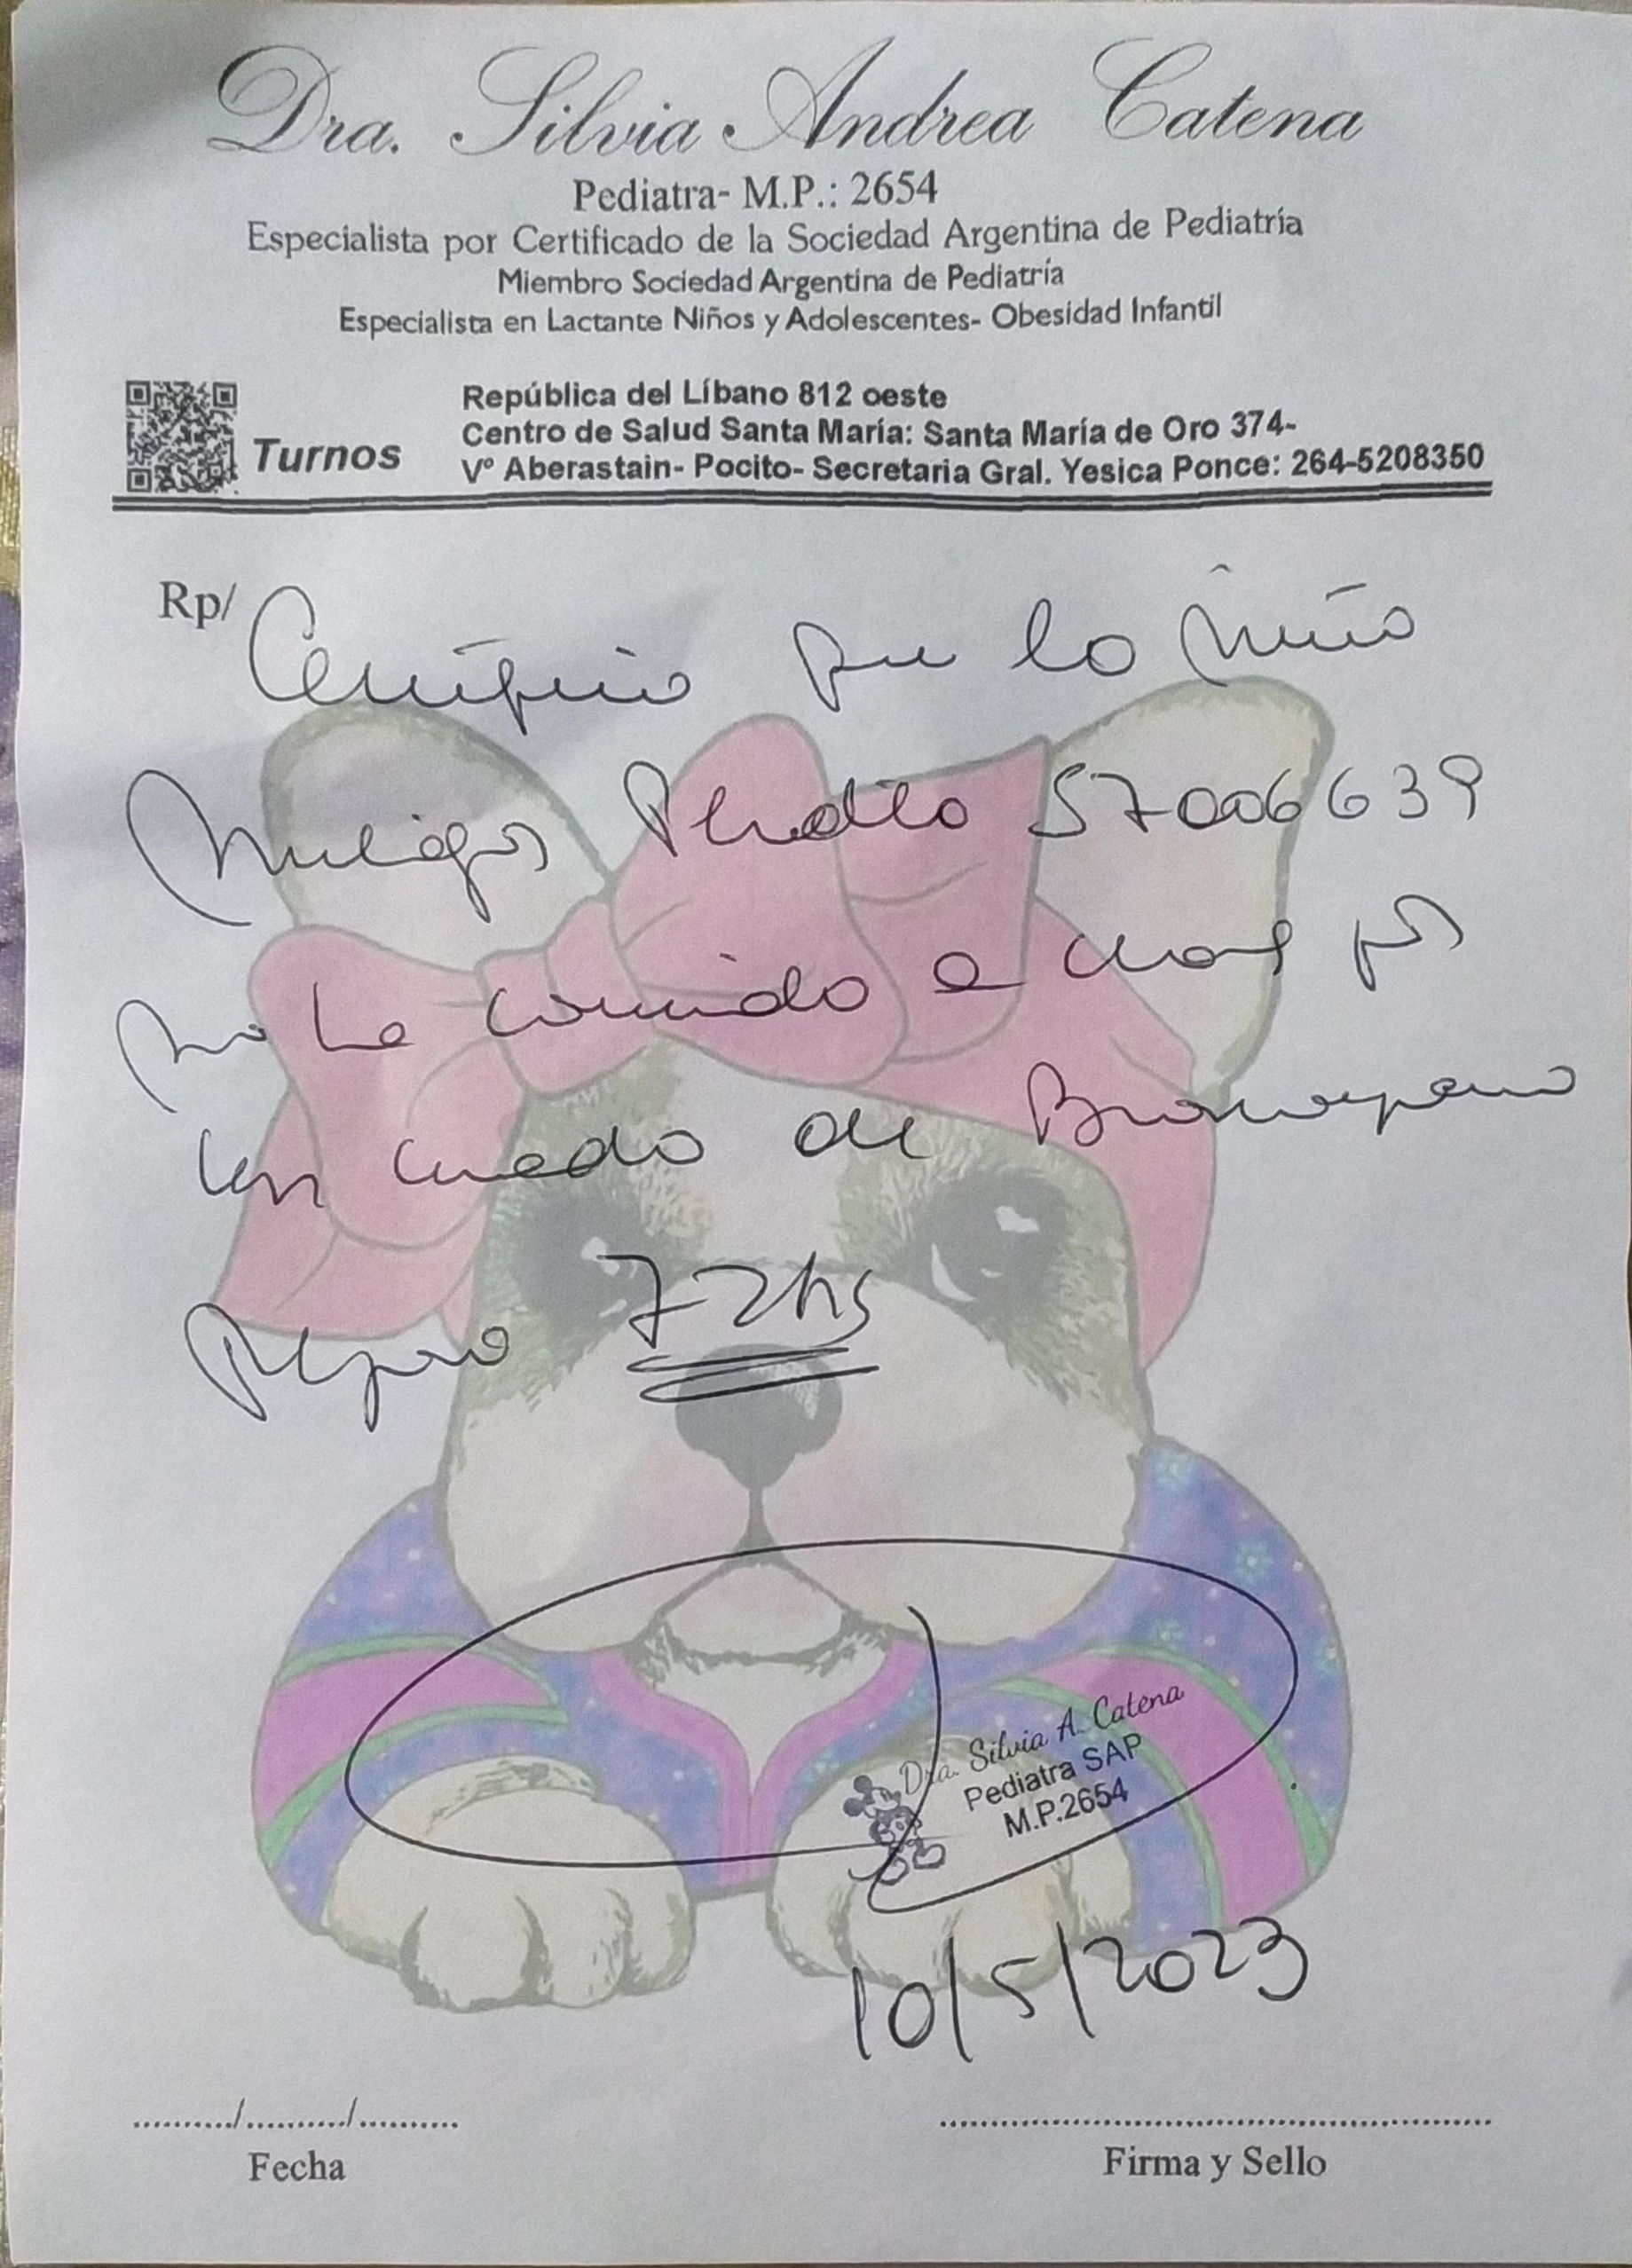 Dra. Silvia Andrea Catena
Pediatra- M.P.: 2654
Especialista por Certificado de la Sociedad Argentina de Pediatría
Miembro Sociedad Argentina de Pediatría
Especialista en Lactante Niños y Adolescentes- Obesidad Infantil
República del Líbano 812 oeste
Centro de Salud Santa María: Santa María de Oro 374-
Turnos
Vº Aberastain- Pocito- Secretaria Gral. Yesica Ponce: 264-5208350
Rp/ Certifico que la niña
Milagros 57006639
no ha concurrido a clases por
un cuadro de
Reposo 72hs
Dra. Silvia A. Catena
Pediatra SAP
M.P.2654
10/5/2023
........../........../..........
Fecha
Firma y Sello